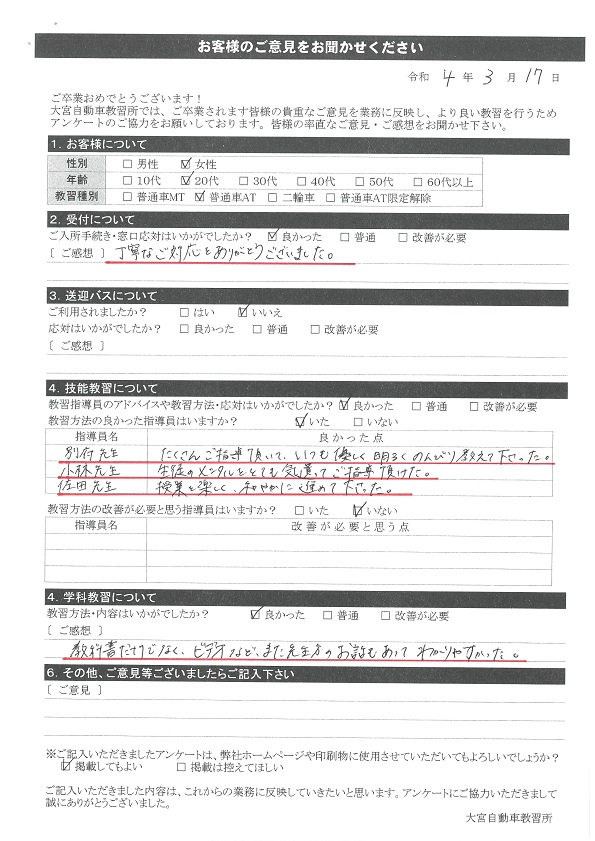 お客様のご意見をお聞かせください
令和 4 年 3 月 17 日
ご卒業おめでとうございます!
大宮自動車教習所では、ご卒業されます皆様の貴重なご意見を業務に反映し、より良い教習を行うため
アンケートのご協力をお願いしております。皆様の率直なご意見・ご感想をお聞かせ下さい。
1. お客様について
性別 □ 男性 ☑ 女性
年齢 □ 10代 ☑ 20代 □ 30代 □ 40代 □ 50代 □ 60代以上
教習種別 □ 普通車MT ☑ 普通車AT □ 二輪車 □ 普通車AT限定解除
2. 受付について
ご入所手続き・窓口応対はいかがでしたか? ☑ 良かった □ 普通 □ 改善が必要
〔 ご感想 〕 丁寧なご対応をありがとうございました。
3. 送迎バスについて
ご利用されましたか? □ はい ☑ いいえ
応対はいかがでしたか? □ 良かった □ 普通 □ 改善が必要
〔 ご感想 〕
4. 技能教習について
教習指導員のアドバイスや教習方法・応対はいかがでしたか? ☑ 良かった □ 普通 □ 改善が必要
教習方法の良かった指導員はいますか? ☑ いた □ いない
指導員名 良かった点
別府先生 たくさんご指導頂いて、いつも優しく明るくのんびり教えて下さった。
小林先生 生徒のメンタルをとても気遣ってご指導頂けた。
佐田先生 授業を楽しく、和やかに進めて下さった。
教習方法の改善が必要と思う指導員はいますか? □ いた ☑ いない
指導員名 改善が必要と思う点
4. 学科教習について
教習方法・内容はいかがでしたか? ☑ 良かった □ 普通 □ 改善が必要
〔 ご感想 〕
教科書だけでなく、ビデオなど、また先生方のお話もあってわかりやすかった。
6. その他、ご意見等ございましたらご記入下さい
〔 ご意見 〕
※ご記入いただきましたアンケートは、弊社ホームページや印刷物に使用させていただいてもよろしいでしょうか?
☑ 掲載してもよい □ 掲載は控えてほしい
ご記入いただきました内容は、これからの業務に反映していきたいと思います。アンケートにご協力いただきまして
誠にありがとうございました。
大宮自動車教習所